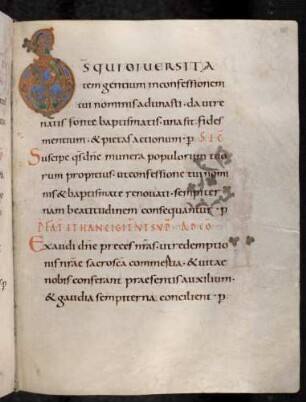 DS QUI DIVERSITA
tem gentium inconfessionem
tui nominis adunasti · da ut re
natis fonte baptismatis · una sit fides
mentium · & pietas actionum · p SEC
Suscipe qs dne munera populorum tuo
rum propitius · ut confessione tui nomi
nis & baptismate renouati · sempiter
nam beatitudinem consequantur · p
AD CO
Exaudi dne preces nras · ut redemptio
nis nrae sacrosca commertia · & uitae
nobis conferant praesentis auxilium ·
& gaudia sempiterna concilient · p